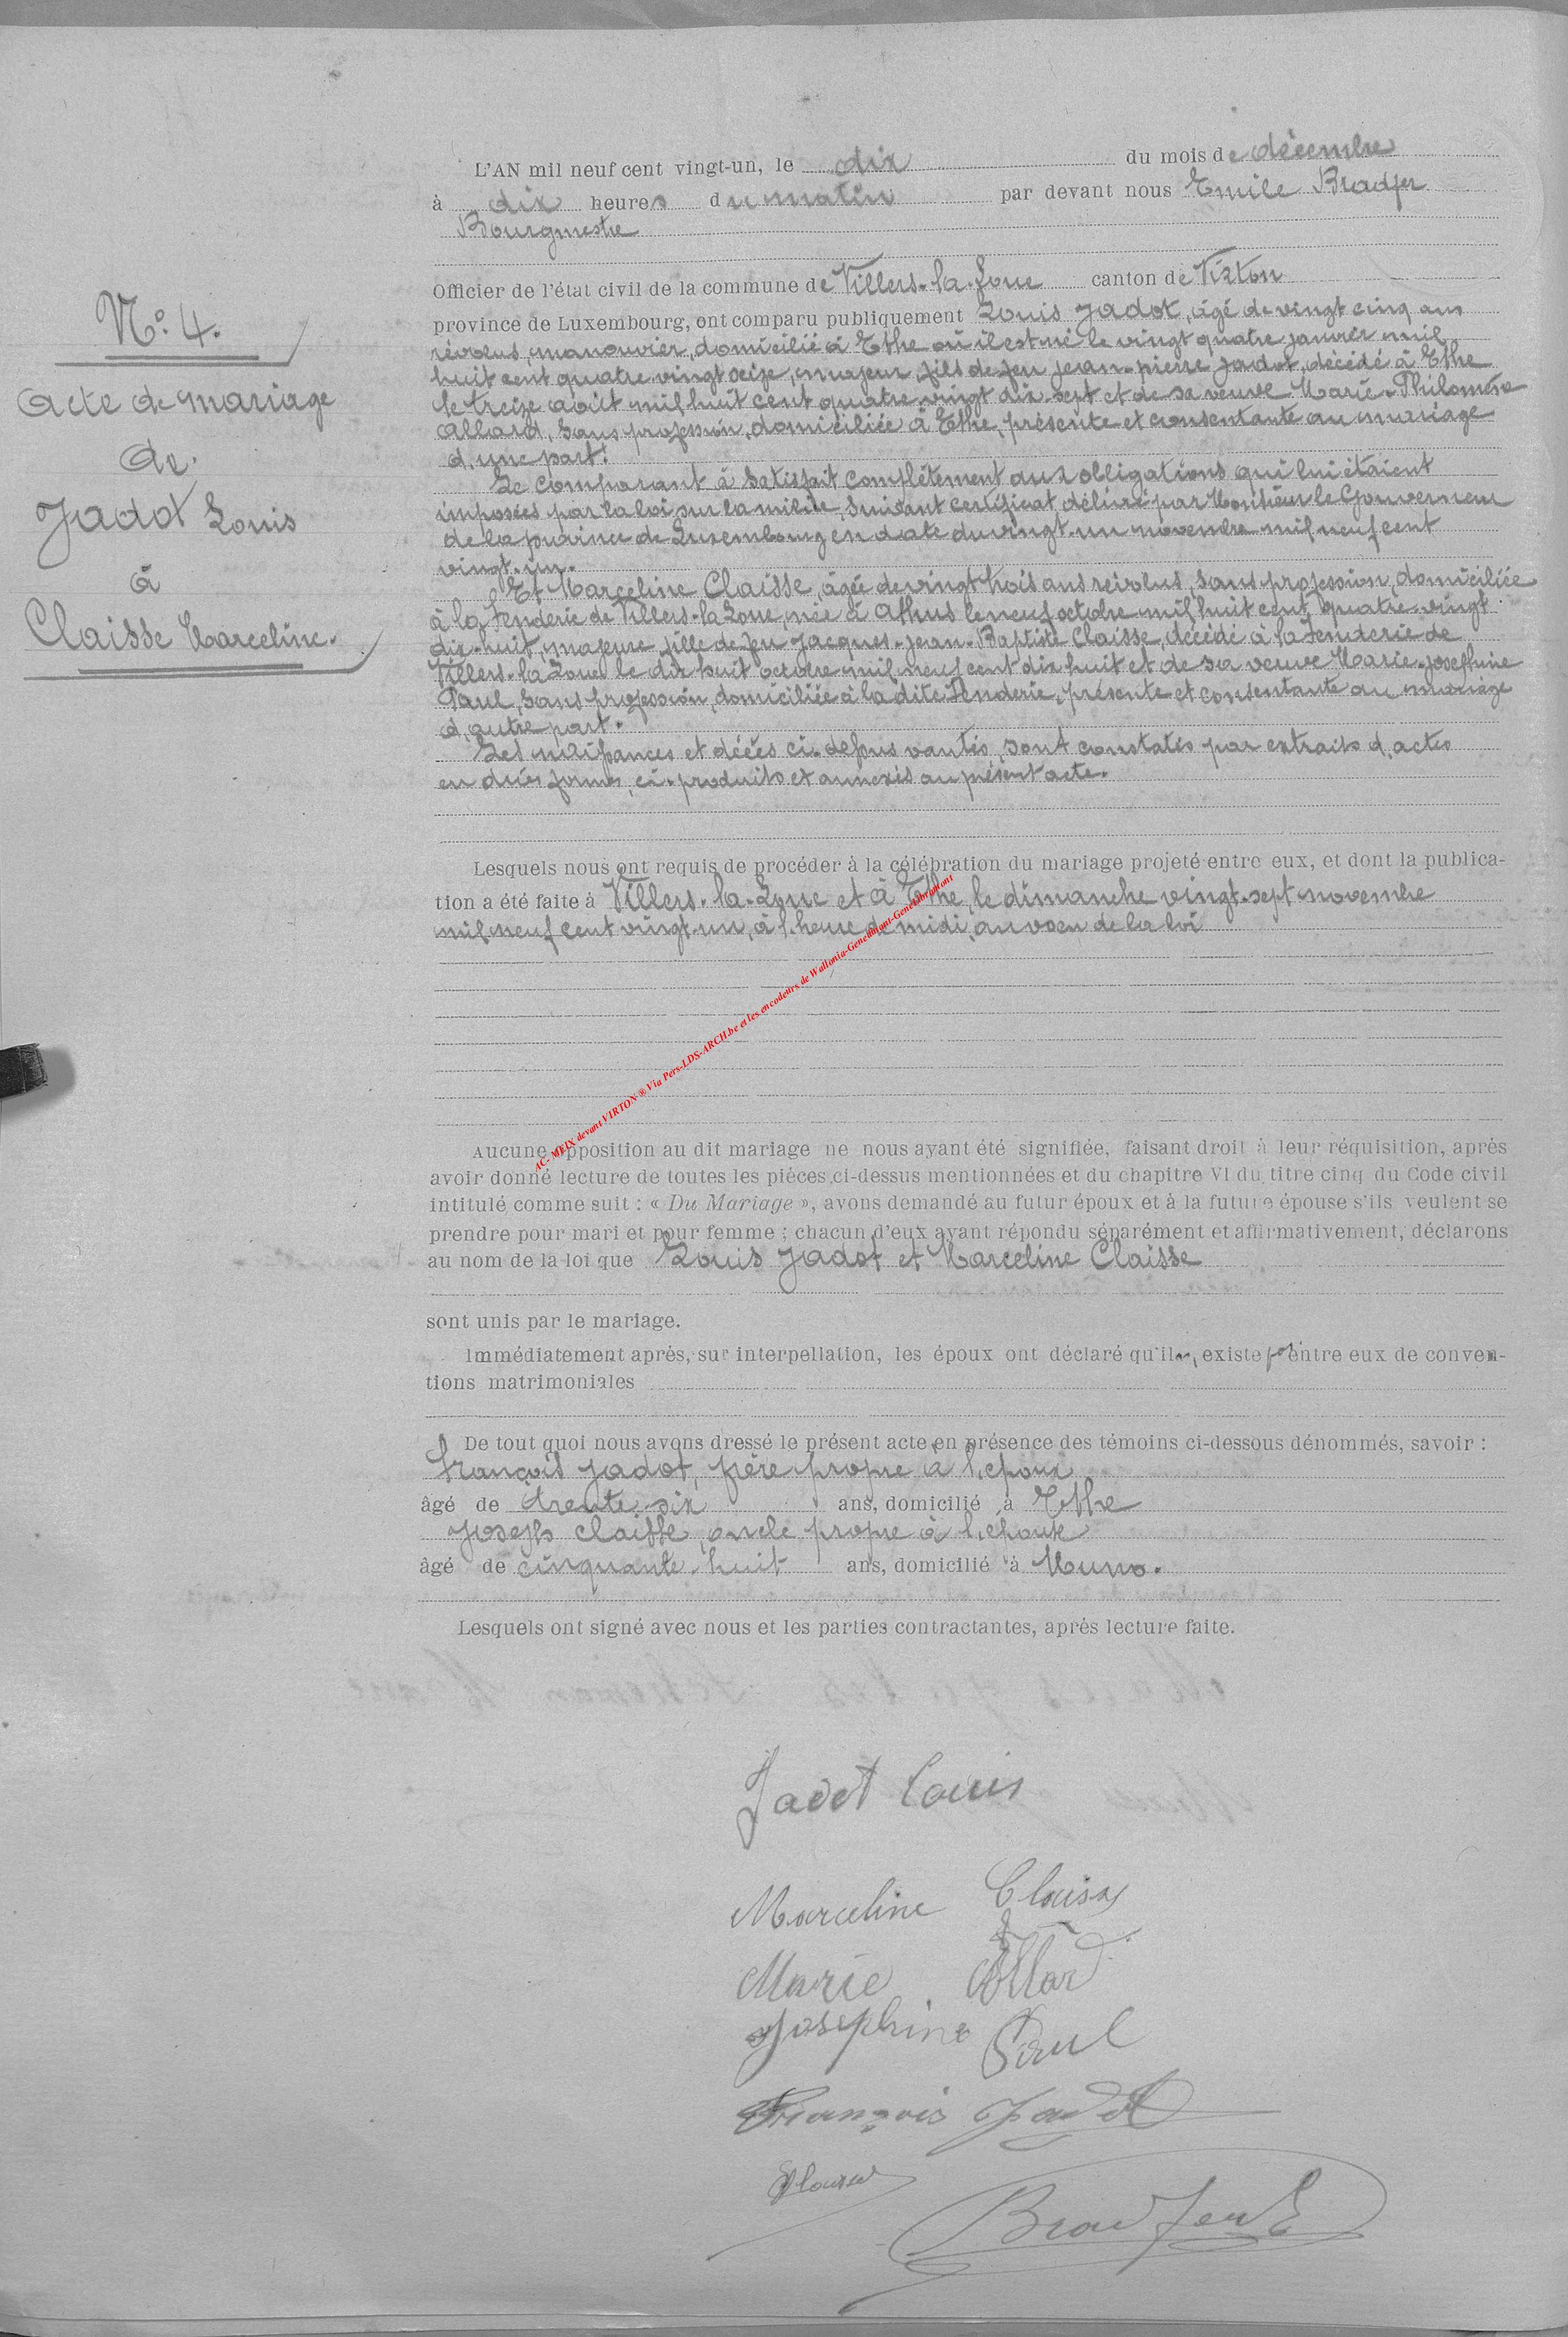 N° 4.
Acte de mariage
de
Jadot Louis
à
Claisse Marceline.
L'AN mil neuf cent vingt-un, le dix du mois de décembre
à dix heures du matin par devant nous Emile Bradfer
Bourgmestre
Officier de l'état civil de la commune de Villers-la-Loue canton de Virton
province de Luxembourg, ont comparu publiquement Louis Jadot, âgé de vingt cinq ans
révolus, manouvrier, domicilié à Ethe où il est né le vingt quatre janvier mil
huit cent quatre vingt seize, majeur, fils de feu Jean-pierre Jadot, décédé à Ethe
le treize août mil huit cent quatre vingt dix-sept et de sa veuve Marie-Philomène
Allard, sans profession, domiciliée à Ethe, présente et consentante au mariage
d'une part.
Le comparant à satisfait complètement aux obligations qui lui étaient
imposées par la loi sur la milice, suivant certificat délivré par Monsieur le Gouverneur
de la province de Luxembourg en date du vingt-un novembre mil neuf cent
vingt-un.
Et Marceline Claisse, âgée de vingt trois ans révolus, sans profession, domiciliée
à la Fenderie de Villers-la-Loue, née à Athus le neuf octobre mil huit cent quatre-vingt
dix-huit, majeure, fille de feu Jacques-Jean-Baptiste Claisse, décédé à la Fenderie de
Villers-la-Loue le dix huit octobre mil neuf cent dix huit et de sa veuve Marie-Josephine
Paul, sans profession, domiciliée à la dite Fenderie, présente et consentante au mariage
d'autre part.
Les naissances et décès ci-dessus vantés, sont constatés par extraits d'actes
en dues formes, ci-produits et annexés au présent acte.
Lesquels nous ont requis de procéder à la célébration du mariage projeté entre eux, et dont la publica-
tion a été faite à Villers-la-Loue et à Ethe, le dimanche vingt-sept novembre
mil neuf cent vingt un, à l'heure de midi, au voeu de la loi
AC- MEIX devant VIRTON ® Via Pers-LDS-ARCH.be et les encodeurs de Wallonia-Genedinant-GeneLibramont
Aucune opposition au dit mariage ne nous ayant été signifiée, faisant droit à leur réquisition, après
avoir donné lecture de toutes les pièces ci-dessus mentionnées et du chapitre VI du titre cinq du Code civil
intitulé comme suit : « Du Mariage », avons demandé au futur époux et à la future épouse s'ils veulent se
prendre pour mari et pour femme ; chacun d'eux ayant répondu séparément et affirmativement, déclarons
au nom de la loi que Louis Jadot et Marceline Claisse
sont unis par le mariage.
Immédiatement après, sur interpellation, les époux ont déclaré qu'il n'existe pas entre eux de conven-
tions matrimoniales
De tout quoi nous avons dressé le présent acte en présence des témoins ci-dessous dénommés, savoir :
François Jadot, frère propre à l'époux
âgé de trente-six ans, domicilié à Ethe
Joseph Claisse, oncle propre à l'épouse
âgé de cinquante-huit ans, domicilié à Muno.
Lesquels ont signé avec nous et les parties contractantes, après lecture faite.
Jadot Louis
Marceline Claisse
Marie Allard
Josephine Paul
François Jadot
Bradfer E